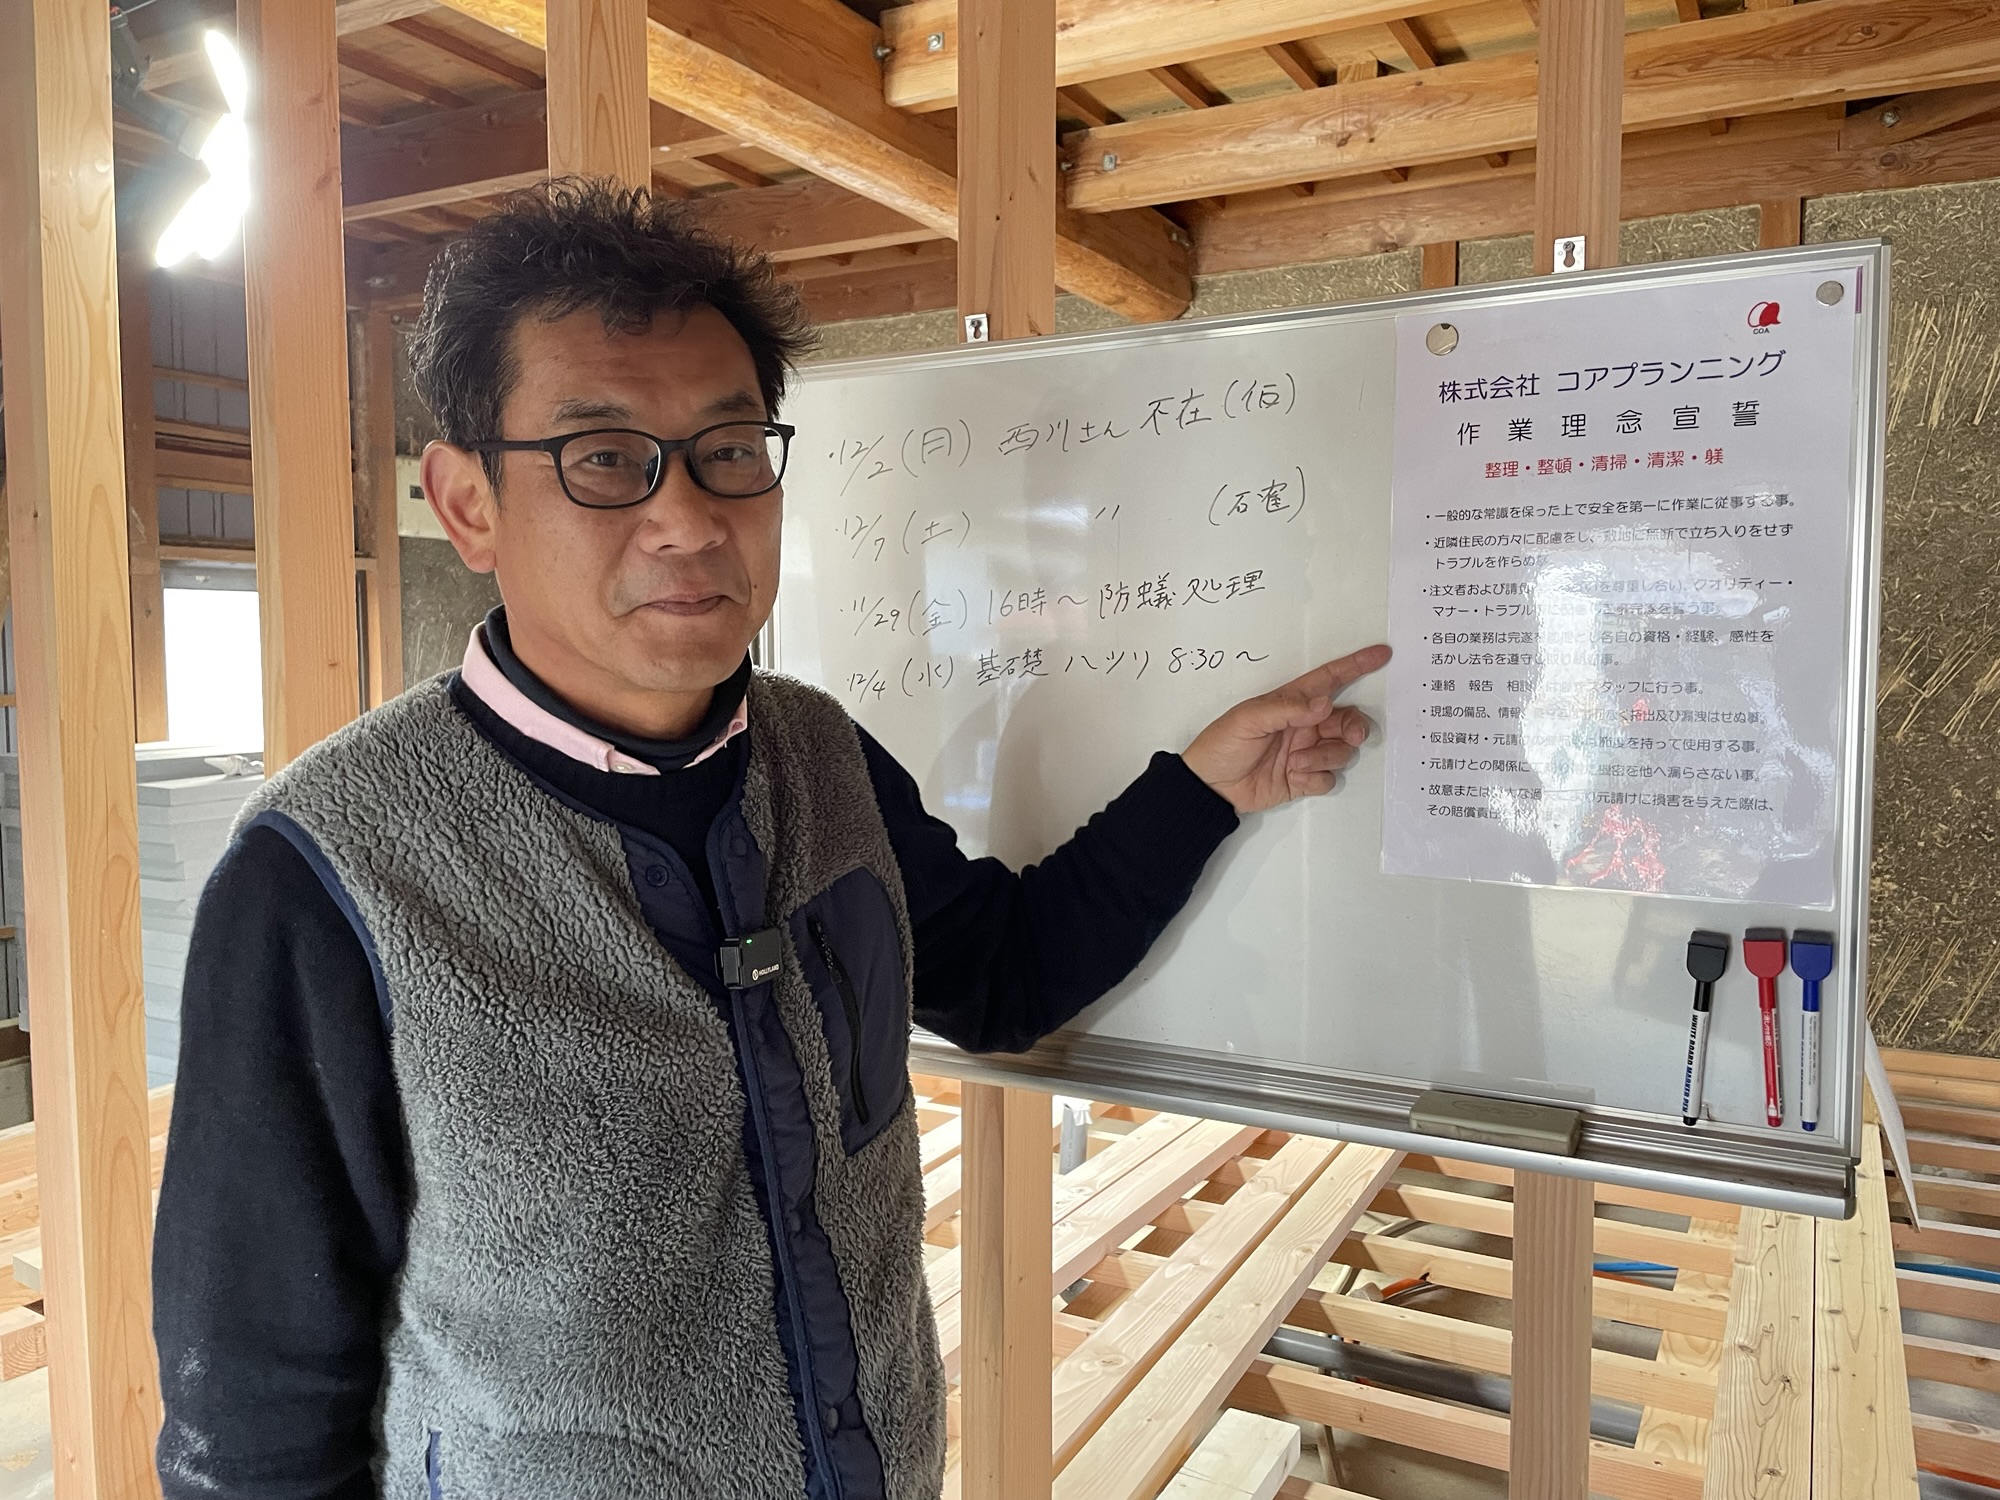 ・12/2(月) 西川さん 不在(仮)
・12/7(土) 〃 (石窪)
・11/29(金) 16時〜防蟻処理
・12/4(水) 基礎 ハツリ 8:30〜
COA
株式会社 コアプランニング
作業理念宣誓
整理・整頓・清掃・清潔・躾
・一般的な常識を保った上で安全を第一に作業に従事する事。
・近隣住民の方々に配慮をし、敷地に無断で立ち入りをせず
トラブルを作らぬ
・注文者および請負 を尊重し合い、クオリティー・
マナー・トラブル
・各自の業務は完遂を 各自の資格・経験、感性を
活かし法令を遵守 事。
・連絡 報告 相談 スタッフに行う事。
・現場の備品、情報、 持出及び漏洩はせぬ事。
・仮設資材・元請けの を持って使用する事。
・元請けとの関係に 機密を他へ漏らさない事。
・故意または 元請けに損害を与えた際は、
その賠償責任
HOLLYLAND
WHITE BOARD MARKER PEN